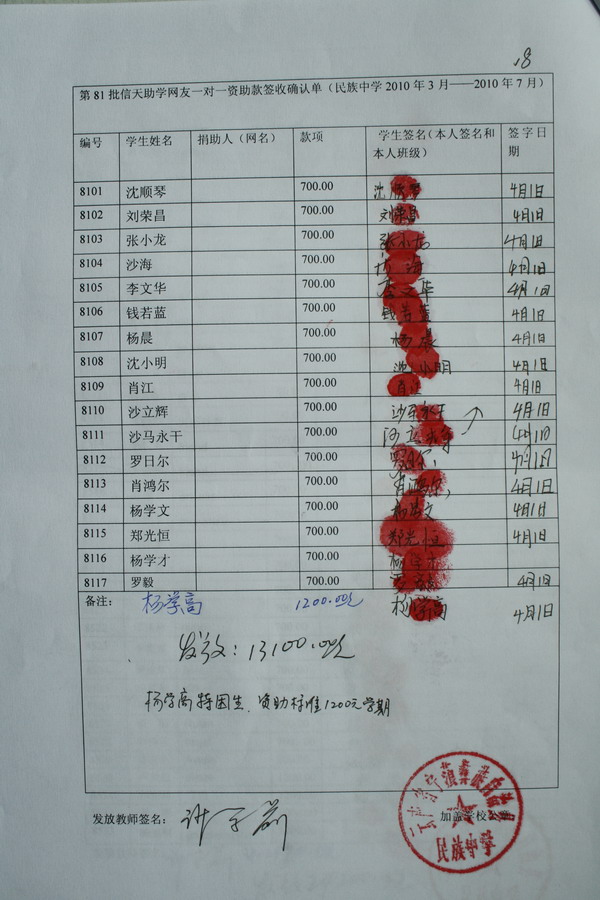 18
第81批信天助学网友一对一资助款签收确认单（民族中学2010年3月——2010年7月）
编号 学生姓名 捐助人（网名） 款项 学生签名（本人签名和本人班级） 签字日期
8101 沈顺琴 700.00 沈顺琴 4月1日
8102 刘荣昌 700.00 刘荣昌 4月1日
8103 张小龙 700.00 张小龙 4月1日
8104 沙海 700.00 沙海 4月1日
8105 李文华 700.00 李文华 4月1日
8106 钱若蓝 700.00 钱若蓝 4月1日
8107 杨晨 700.00 杨晨 4月1日
8108 沈小明 700.00 沈小明 4月1日
8109 肖江 700.00 肖江 4月1日
8110 沙立辉 700.00 沙马永干 4月1日
8111 沙马永干 700.00 沙立 4月1日
8112 罗日尔 700.00 4月1日
8113 肖鸿尔 700.00 肖鸿尔 4月1日
8114 杨学文 700.00 杨学文 4月1日
8115 郑光恒 700.00 郑光恒 4月1日
8116 杨学才 700.00 杨学才
8117 罗毅 700.00 罗毅 4月1日
备注： 杨学高 1200.00元 杨学高 4月1日
发放：13100.00元
杨学高特困生、资助标准1200元学期
发放教师签名： 加盖学校公章
民族中学